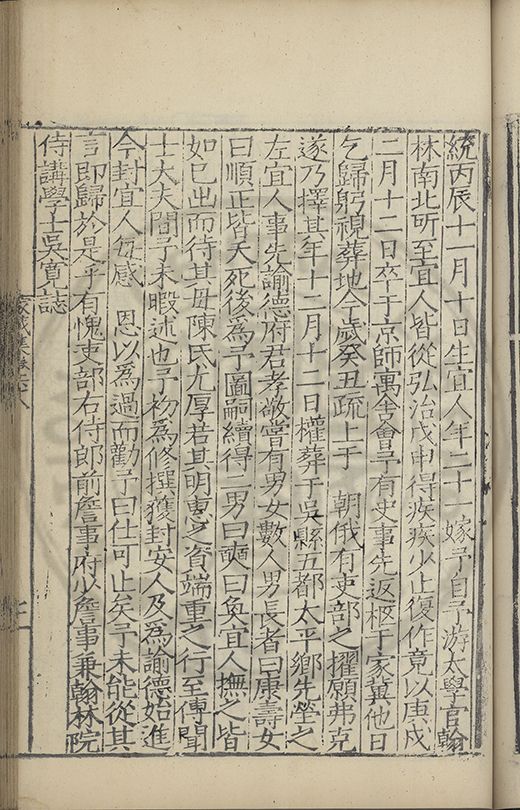 統丙辰十一月十日生宜人年二十一嫁予自予游太學官翰
林南北所至宜人皆從弘治戊申得疾疾少止復作竟以庚戌
二月十二日卒于京師寓舍會予有史事先返柩于家冀他日
乞歸躬視葬地今歲癸丑疏上于 朝俄有吏部之擢願弗克
遂乃擇其年十二月十二日權葬于吳縣五都太平鄉先塋之
左宜人事先諭德府君孝敬嘗有男女數人男長者曰康壽女
曰順正皆夭死後為予圖嗣續得二男曰奭曰奐宜人撫之皆
如已出而待其母陳氏尤厚若其明惠之資端重之行至傳聞
士大夫間予未暇述也予初為修撰獲封安人及為諭德始進
今封宜人每感 恩以為過而勸予曰仕可止矣予未能從其
言即歸於是乎有愧吏部右侍郎前詹事府少詹事兼翰林院
侍講學士吳寬誌